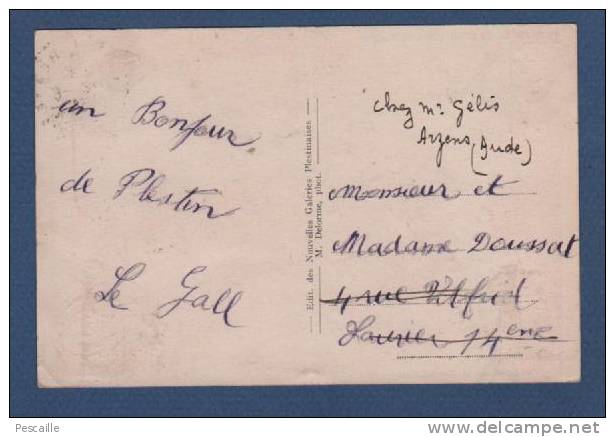 un Bonjour
de Plestin
Le Gall
Edit. des Nouvelles Galeries Plestinaises
M. Delorme, phot.
Chez Mr Gélis
Arzens (Aude)
Monsieur et
Madame Doussat
4 rue
14 eme
Pescaille
www.delcampe.net